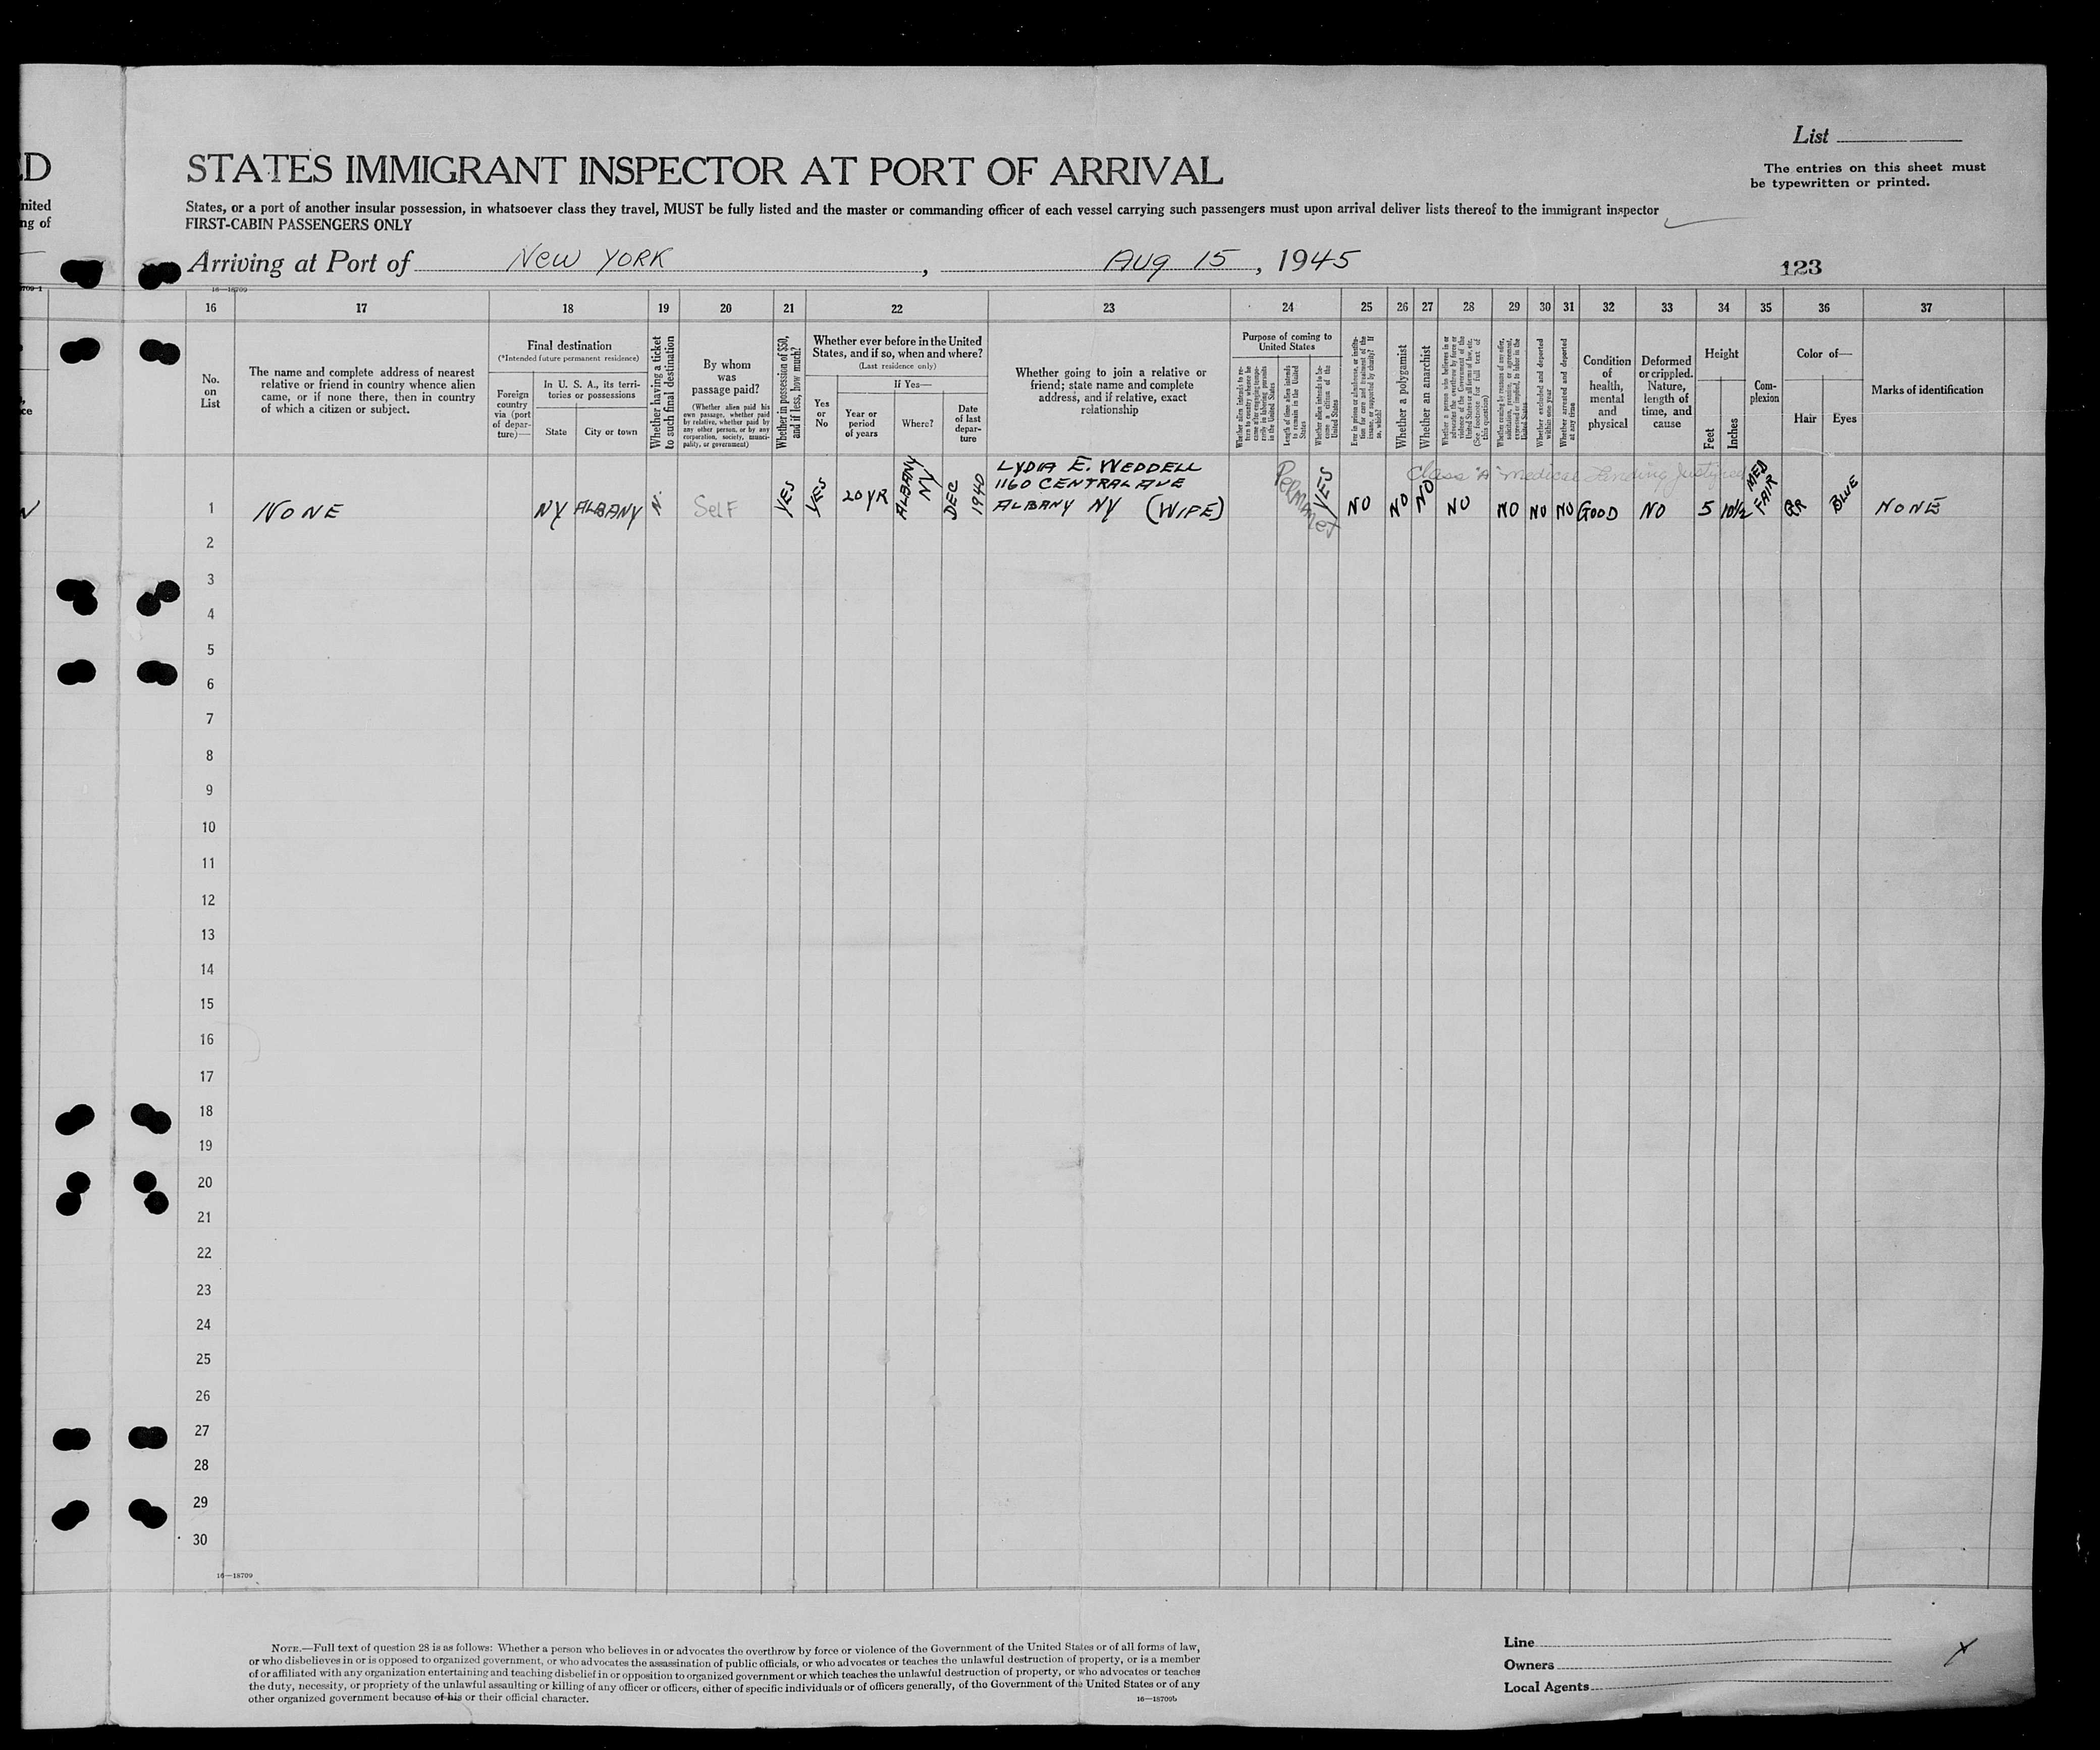 List
The entries on this sheet must
be typewritten or printed.
ED
STATES IMMIGRANT INSPECTOR AT PORT OF ARRIVAL
nited
ng of
States, or a port of another insular possession, in whatsoever class they travel, MUST be fully listed and the master or commanding officer of each vessel carrying such passengers must upon arrival deliver lists thereof to the immigrant inspector
FIRST-CABIN PASSENGERS ONLY
Arriving at Port of New York, Aug 15, 1945
123
16—18709
16 17 18 19 20 21 22 23 24 25 26 27 28 29 30 31 32 33 34 35 36 37
No.
on
List
The name and complete address of nearest
relative or friend in country whence alien
came, or if none there, then in country
of which a citizen or subject.
Final destination
(*Intended future permanent residence)
Foreign
country
via (port
of depar-
ture)—
In U. S. A., its terri-
tories or possessions
State
City or town
Whether having a ticket
to such final destination
By whom
was
passage paid?
(Whether alien paid his
own passage, whether paid
by relative, whether paid by
any other person, or by any
corporation, society, munici-
pality, or government)
Whether in possession of $50,
and if less, how much?
Whether ever before in the United
States, and if so, when and where?
(Last residence only)
Yes
or
No
If Yes—
Year or
period
of years
Where?
Date
of last
depar-
ture
Whether going to join a relative or
friend; state name and complete
address, and if relative, exact
relationship
Purpose of coming to
United States
Whether alien intends to re-
turn to country whence he
came after engaging tempo-
rarily in laboring pursuits
in the United States
Length of time alien intends
to remain in the United
States
Whether alien intends to be-
come a citizen of the
United States
Ever in prison or almshouse, or institu-
tion for care and treatment of the
insane, or supported by charity? If
so, which?
Whether a polygamist
Whether an anarchist
Whether a person who believes in or
advocates the overthrow by force or
violence of the Government of the
United States or all forms of law, etc.
(See footnote for full text of
this question)
Whether coming by reason of any offer,
solicitation, promise, or agreement,
expressed or implied, to labor in the
United States
Whether excluded and deported
within one year
Whether arrested and deported
at any time
Condition
of
health,
mental
and
physical
Deformed
or crippled.
Nature,
length of
time, and
cause
Height
Feet
Inches
Com-
plexion
Color of—
Hair
Eyes
Marks of identification
Class "A" medical Landing Justified
1 NONE NY ALBANY N. Self YES YES 20 YR ALBANY NY DEC 1940
LYDIA E. WEDDELL
1160 CENTRAL AVE
ALBANY NY (WIFE)
Permanet YES NO NO NO NO NO NO NO GOOD NO 5 10½ MED FAIR BR BLUE NONE
2
3
4
5
6
7
8
9
10
11
12
13
14
15
16
17
18
19
20
21
22
23
24
25
26
27
28
29
30
16—18709
NOTE.—Full text of question 28 is as follows: Whether a person who believes in or advocates the overthrow by force or violence of the Government of the United States or of all forms of law,
or who disbelieves in or is opposed to organized government, or who advocates the assassination of public officials, or who advocates or teaches the unlawful destruction of property, or is a member
of or affiliated with any organization entertaining and teaching disbelief in or opposition to organized government or which teaches the unlawful destruction of property, or who advocates or teaches
the duty, necessity, or propriety of the unlawful assaulting or killing of any officer or officers, either of specific individuals or of officers generally, of the Government of the United States or of any
other organized government because of his or their official character.
16—18709b
Line
Owners
Local Agents
X